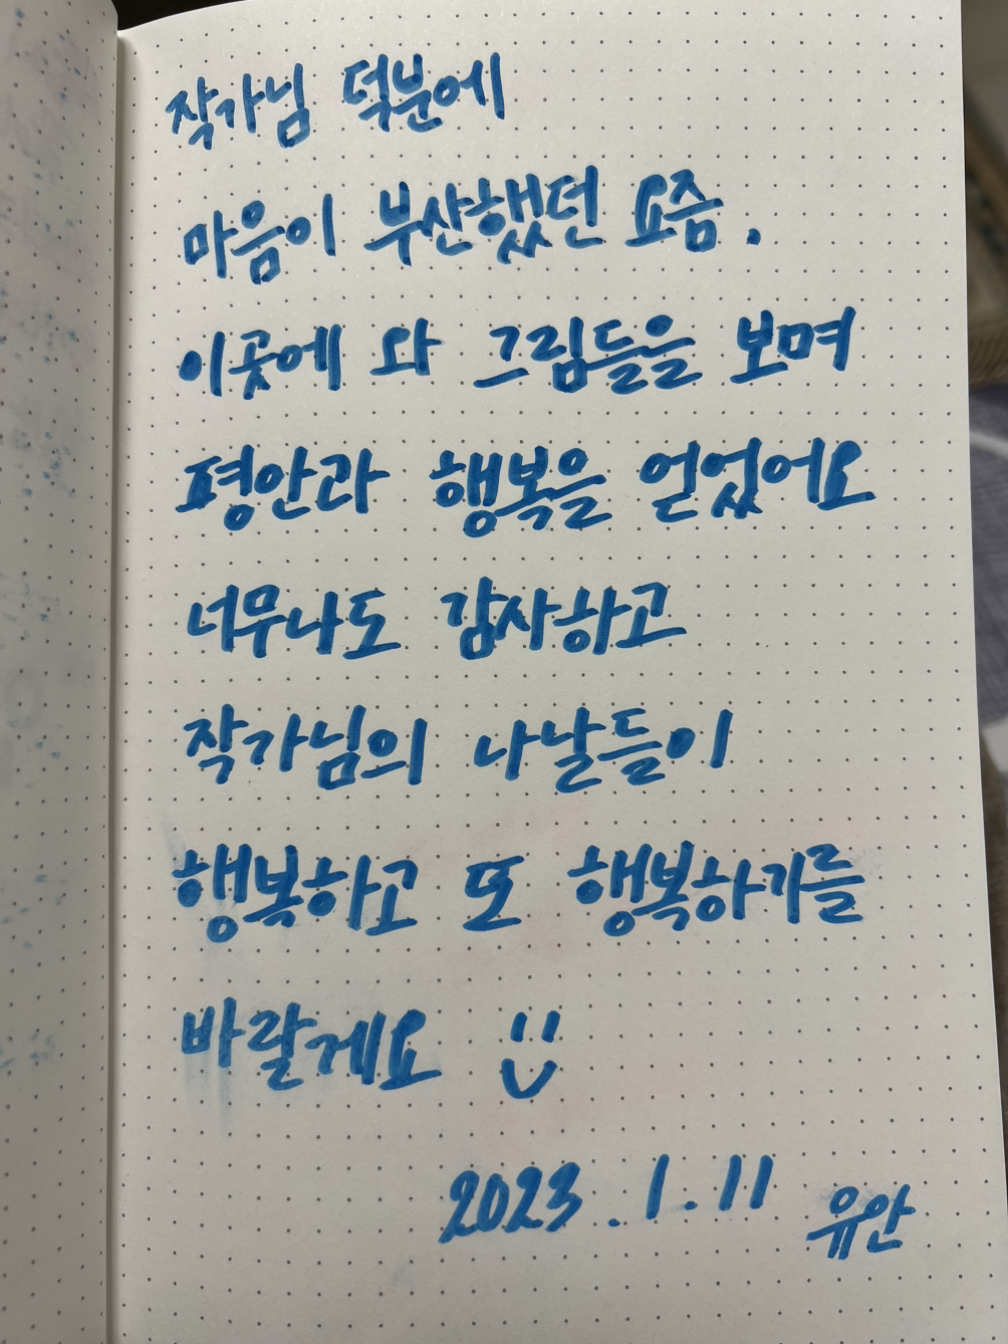 작가님 덕분에
마음이 부산했던 요즘.
이곳에 와 그림들을 보며
평안과 행복을 얻었어요
너무나도 감사하고
작가님의 나날들이
행복하고 또 행복하기를
바랄게요 :)
2023.1.11 유안